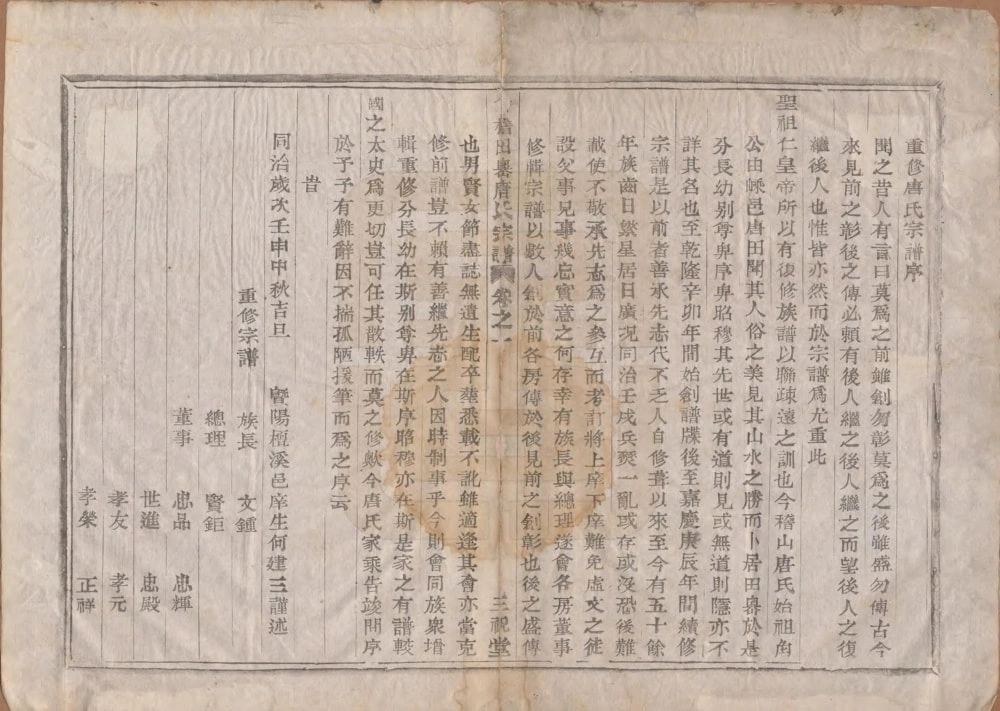 重修唐氏宗譜序
聞之昔人有言曰莫爲之前雖創勿彰莫爲之後雖盛勿傳古今
來見前之彰後之傳必賴有後人繼之後人繼之而望後人之復
繼後人也惟皆亦然而於宗譜爲尤重此
聖祖仁皇帝所以有復修族譜以聯疎遠之訓也今稽山唐氏始祖角
公由嵊邑唐田聞其人俗之美見其山水之勝而卜居田嶴於是
分長幼别尊卑序昭穆其先世或有道則見或無道則隱亦不
詳其名也至乾隆辛卯年間始創譜牒後至嘉慶庚辰年間續修
宗譜是以前者善承先志代不乏人自修葺以來至今有五十餘
年族齒日繁星居日廣况同治壬戌兵燹一亂或存或没恐後難
載使不敬承先志爲之參互而考訂將上庠下庠難免虛文之徒
設父事兄事幾忘實意之何存幸有族長與總理遂會各房董事
修輯宗譜以數人創於前各房傳於後見前之創彰也後之盛傳
稽田嶴唐氏宗譜 卷之一 三祝堂
也男賢女節盡誌無遺生配卒塟悉載不訛雖適逢其會亦當克
修前譜豈不賴有善繼先志之人因時制事乎今則會同族衆增
輯重修分長幼在斯别尊卑在斯序昭穆亦在斯是家之有譜較
國之太史爲更切豈可任其散軼而莫之修歟今唐氏家乘告竣問序
於予予有難辭因不揣孤陋援筆而爲之序云
旹
同治歲次壬申中秋吉旦 暨陽檀溪邑庠生何建三謹述
重修宗譜 族長 文鍾
總理 賢鉅
董事 忠品 忠輝
世進 忠殿
孝友 孝元
孝榮 正祥